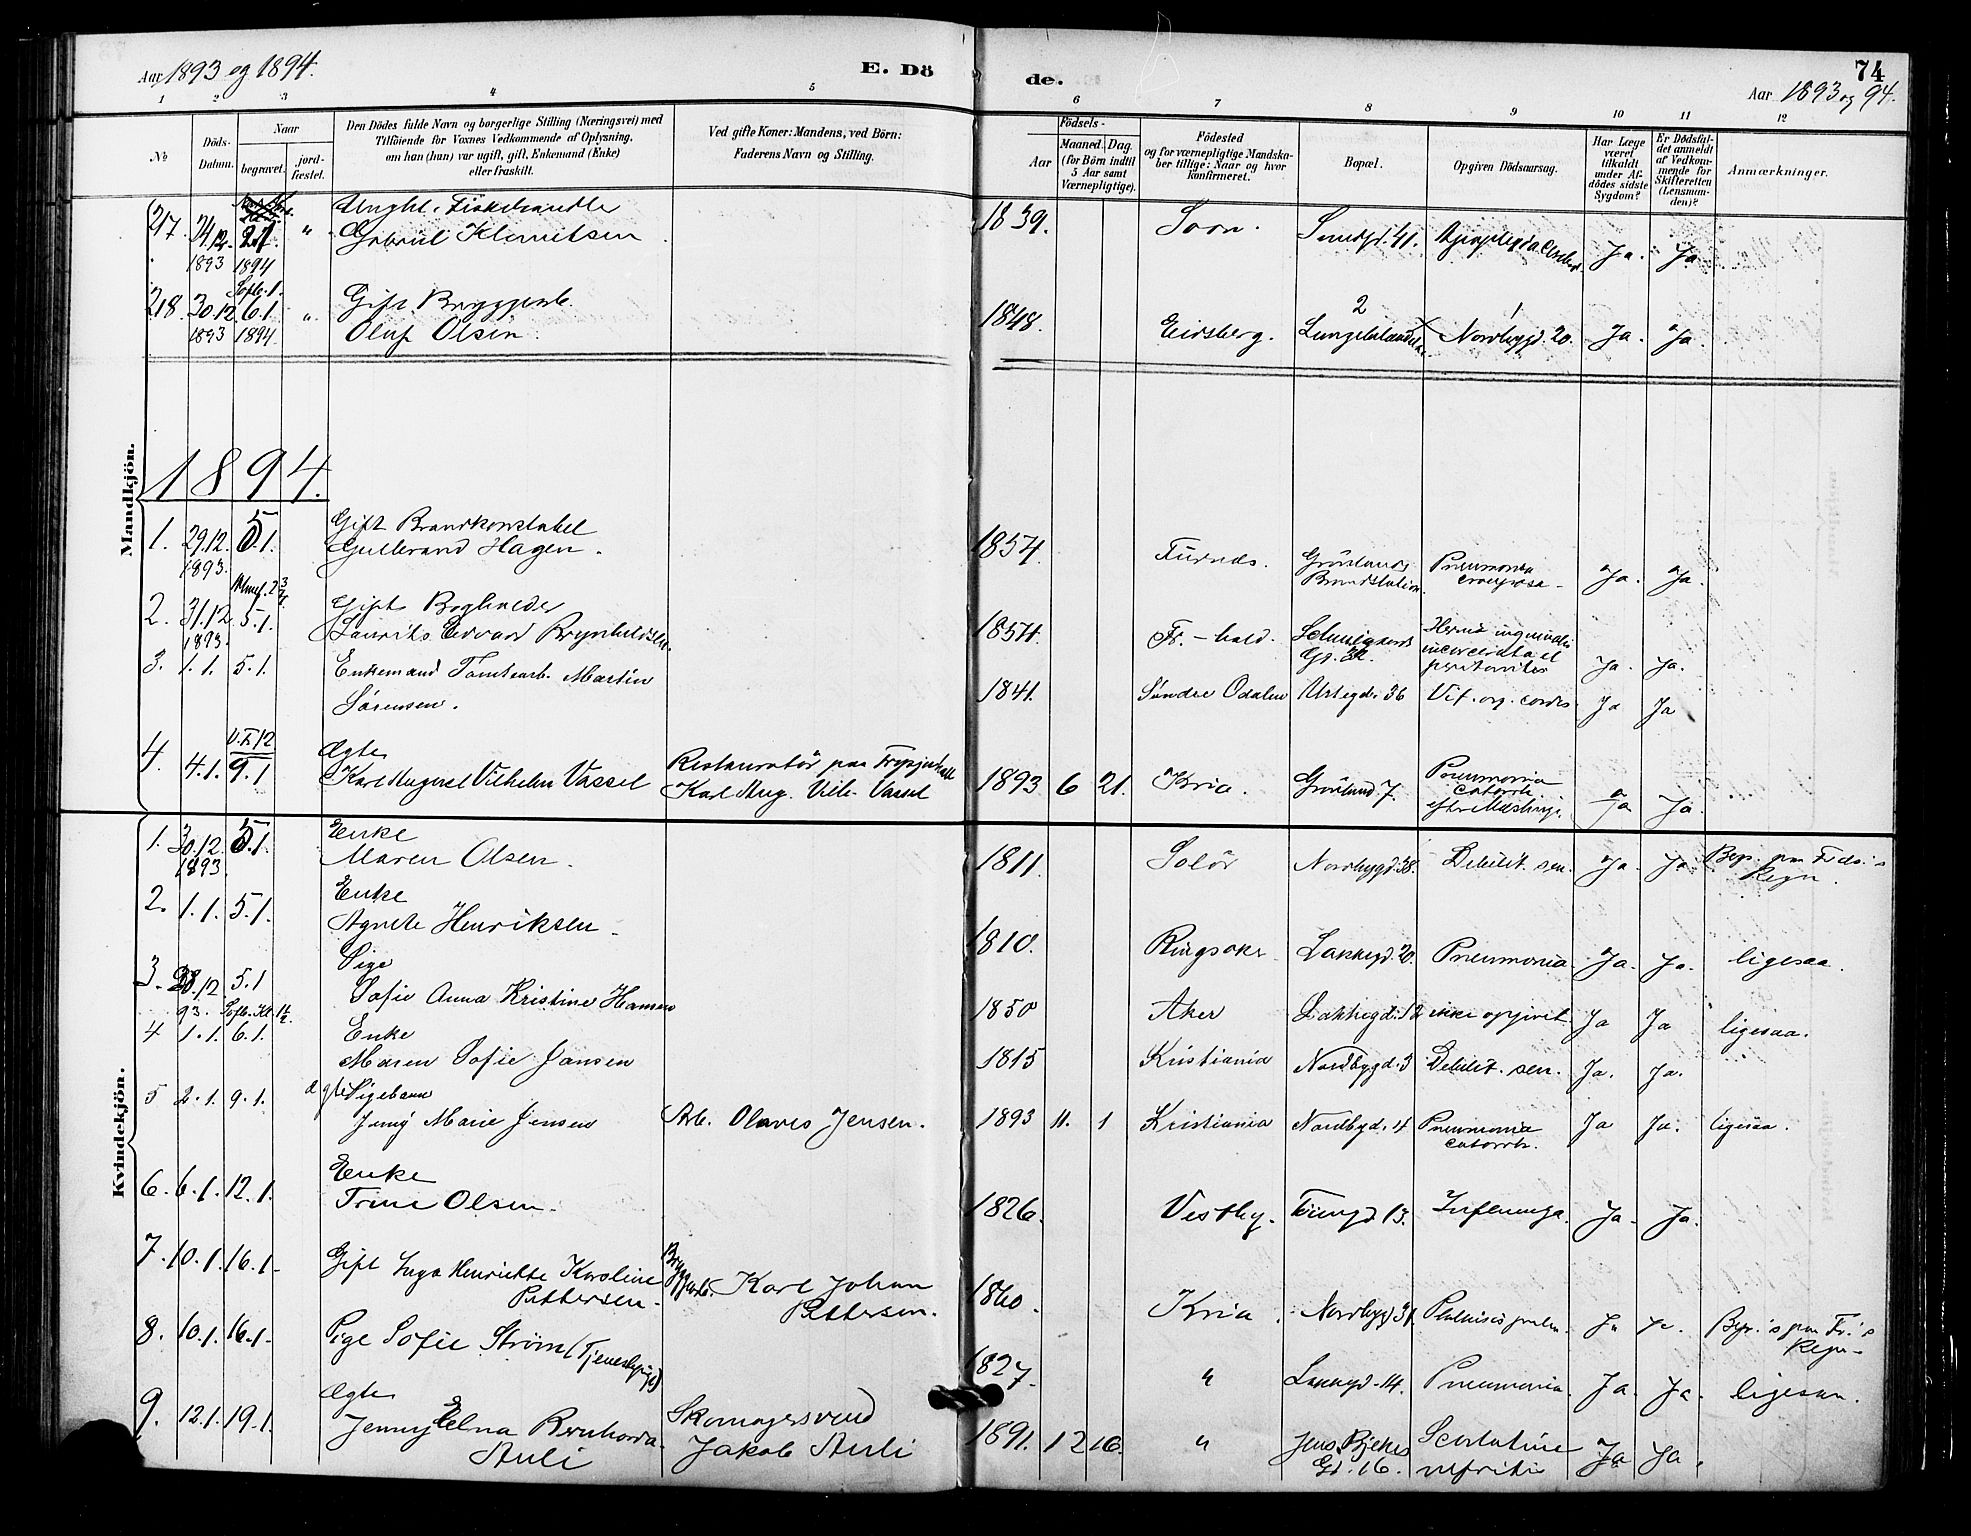 Aar 1893 og 1894.
E. Dö
de.
74
Aar 1893 og 94.
1
2
3
4
5
6
7
8
9
10
11
12
No
Döds-Datum.
Naar
begravet.
jord-fæstet.
Den Dödes fulde Navn og borgerlige Stilling (Næringsvei) med
Tilföiende for Voxnes Vedkommende af Oplysning,
om han (hun) var ugift, gift, Enkemand (Enke)
eller fraskilt.
Ved gifte Koner: Mandens, ved Börn:
Faderens Navn og Stilling.
Födsels-
Aar
Maaned.
Dag.
(for Börn indtil
5 Aar samt
Værnepligtige).
Födested
og for værnepligtige Mandska-
ber tillige: Naar og hvor
konfirmeret.
Bopæl.
Opgiven Dödsaarsag.
Har Læge
været
tilkaldt
under Af-
dödes sidste
Sygdom?
Er Dödsfal-
det anmeldt
af Vedkom-
mende for
Skifteretten
(Lensman-
den)?
Anmærkninger.
Mandkjön.
217. 24/12. 1893 2.1 1894 " Ungkl. Fiskehandler
Gabriel Klemetsen 1839. Soon. Smedgd. 41. Ja. Ja
218. 30.12 1893 Sofb. 1. 6.1 1894 " Gift Bryggearb.
Oluf Olsen. 1848. Eidsberg. Nordbygd. 20. Ja. Ja.
1894.
1. 29.12. 1893. 5.1. Gift Brandkonstabel
Gulbrand Hagen. 1854. Furnds. Grönlands
Brandstation Pneumonia
crouposa Ja. Ja.
2. 31.12 1893. 5.1. Gift Bogholder
Laurits Edvard Brynhildsen. 1854. Fr.-hald. Schweigaards
Gd. Hernia inguinalis
incarcerata et
peritonitis Ja. Ja.
3. 1.1. 5.1. Enkemand Tomtearb. Martin
Sörensen. 1841. Söndre Odalen Urtegd. 36 Vit. org. cordis Ja Ja
4. 4.1. V.F. 12 9.1 Ægte
Karl August Vilhelm Vassel Restauratör paa
Karl Aug. Vilh. Vassel 1893 6 21. Kria. Grönland 7. Pneumonia
catarrh.
efter Mæslinger. Ja Ja.
Kvindekjön.
1. 30.12. 1893. 5.1. Enke
Maren Olsen. 1811. Solör Nordbygd. 38. Debilit. sen. Ja. Ja Begr. paa Fvds.'s
Regn.
2. 1.1. 5.1. Enke
Agnete Henriksen. 1810. Ringsaker Lakkegd. 20. Pneumonia Ja. Ja. ligesaa.
3. 28.12 93. 5.1 Pige
Sofie Anna Kristine Hansen 1850 Aker Lakkegd. 12 ikke opgivet. Ja Ja ligesaa.
4 1.1. Sofb. Kl. 12 6.1. Enke
Maren Sofie Jansen 1815 Kristiania Nordbygd. 3 Debilit. sen. Ja. Ja.
5 2.1. 9.1. ægte Pigebarn
Jenny Marie Jensen Arb. Olaves Jensen. 1893 11. 1 Kristiania Nordbygd. 4 Pneumonia
catarrh. Ja Ja. ligesaa.
6. 6.1. 12.1. Enke
Trine Olsen. 1826. Vestby. Töiengd 13. Influenza. Ja. Ja.
7. 10.1. 16.1. Gift Inga Henriette Karoline
Pettersen. Bryggearb. Karl Johan
Pettersen. 1860. Kria. Nordbygd 31. Phthisis pulm. Ja Ja.
8. 10.1. 16.1. Pige Sofie Ström (Tjenestepige) 1827. " Lakkegd. 14. Pneumonia. Ja. Ja. Begr.'s paa Fv.'s
Regn.
ligesaa.
9. 12.1. 19.1. Ægte
Jenny Elna Bernharda
Auli Skomagersvend
Jakob Auli 1891. 12 16. " Jens Bjelkes
Gd. 16. Scarlatina
nefritis Ja Ja.